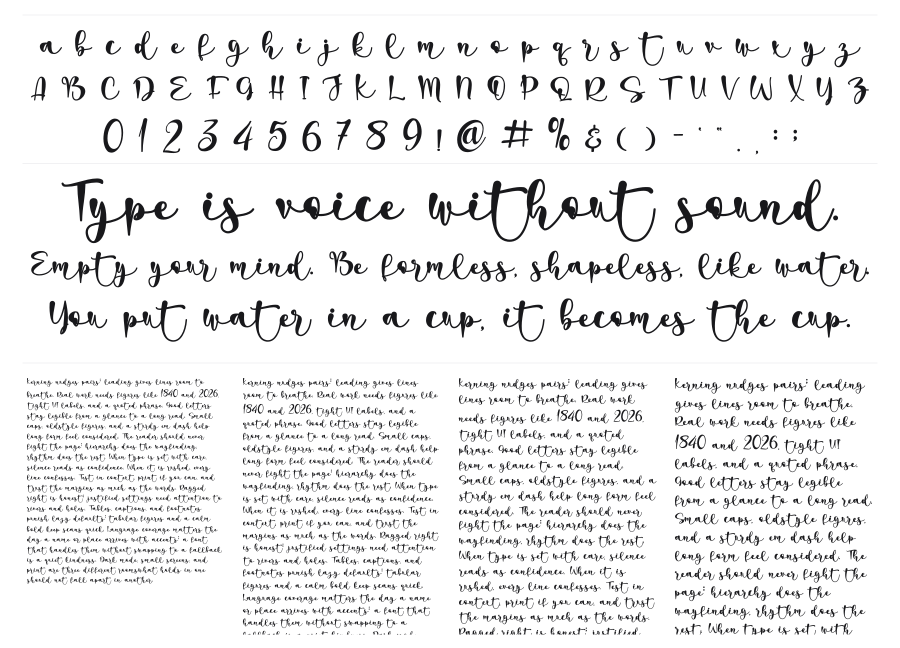 a b c d e f g h i j k l m n o p q r s t u v w x y z
A B C D E F G H I J K L M N O P Q R S T U V W X Y Z
0 1 2 3 4 5 6 7 8 9 ! @ # % & ( ) - ' " . , : ;
Type is voice without sound.
Empty your mind. Be formless, shapeless, like water.
You put water in a cup, it becomes the cup.
Kerning nudges pairs; leading gives lines room to
breathe. Real work needs figures like 1840 and 2026,
tight UI labels, and a quoted phrase. Good letters
stay legible from a glance to a long read. Small
caps, oldstyle figures, and a sturdy em dash help
long form feel considered. The reader should never
fight the page; hierarchy does the wayfinding,
rhythm does the rest. When type is set with care,
silence reads as confidence. When it is rushed, every
line confesses. Test in context, print if you can, and
trust the margins as much as the words. Ragged
right is honest; justified settings need attention to
rivers and holes. Tables, captions, and footnotes
punish lazy defaults; tabular figures and a calm,
bold keep scans quick. Language coverage matters the
day a name or place arrives with accents; a font
that handles them without swapping to a fallback
is a quiet kindness. Dark mode, small screens, and
print are three different rooms; what holds in one
should not fall apart in another.
Kerning nudges pairs; leading gives lines
room to breathe. Real work needs figures like
1840 and 2026, tight UI labels, and a
quoted phrase. Good letters stay legible
from a glance to a long read. Small caps,
oldstyle figures, and a sturdy em dash help
long form feel considered. The reader should
never fight the page; hierarchy does the
wayfinding, rhythm does the rest. When type
is set with care, silence reads as confidence.
When it is rushed, every line confesses. Test in
context, print if you can, and trust the
margins as much as the words. Ragged right
is honest; justified settings need attention
to rivers and holes. Tables, captions, and
footnotes punish lazy defaults; tabular
figures and a calm, bold keep scans quick.
Language coverage matters the day a name
or place arrives with accents; a font that
handles them without swapping to a
Kerning nudges pairs; leading gives
lines room to breathe. Real work
needs figures like 1840 and 2026,
tight UI labels, and a quoted
phrase. Good letters stay legible
from a glance to a long read.
Small caps, oldstyle figures, and a
sturdy em dash help long form feel
considered. The reader should never
fight the page; hierarchy does the
wayfinding, rhythm does the rest.
When type is set with care, silence
reads as confidence. When it is
rushed, every line confesses. Test in
context, print if you can, and trust
the margins as much as the words.
Ragged right is honest; justified
Kerning nudges pairs; leading
gives lines room to breathe.
Real work needs figures like
1840 and 2026, tight UI
labels, and a quoted phrase.
Good letters stay legible
from a glance to a long read.
Small caps, oldstyle figures,
and a sturdy em dash help
long form feel considered. The
reader should never fight the
page; hierarchy does the
wayfinding, rhythm does the
rest. When type is set with